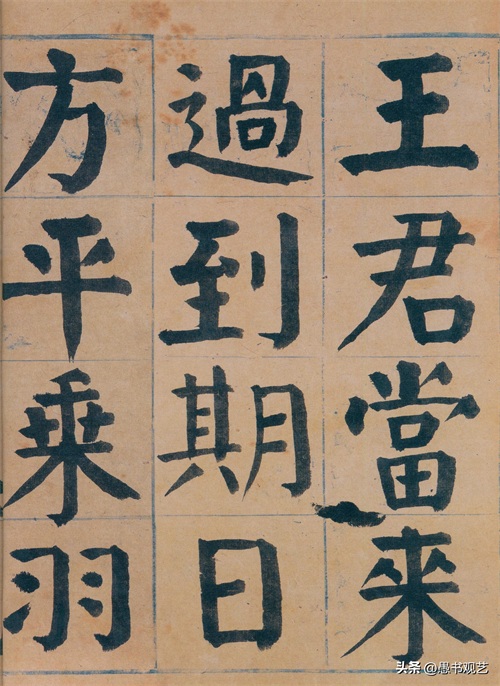 王君當來
過到期日
方平乗羽
头条 @愚书观艺